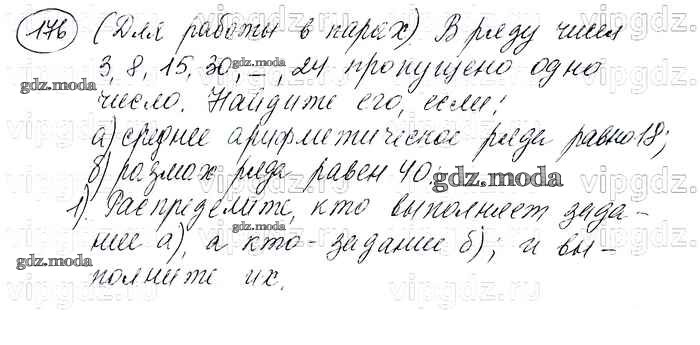 176 (Для работы в парах). В ряду чисел
3, 8, 15, 30, _ , 24 пропущено одно
число. Найдите его, если:
а) среднее арифметическое ряда равно 18;
б) размах ряда равен 40.
1) Распределите, кто выполняет зада-
ние а), а кто - задание б); и вы-
полните их.
gdz.moda
gdz.moda
gdz.moda
gdz.moda
gdz.moda
vipgdz.ru